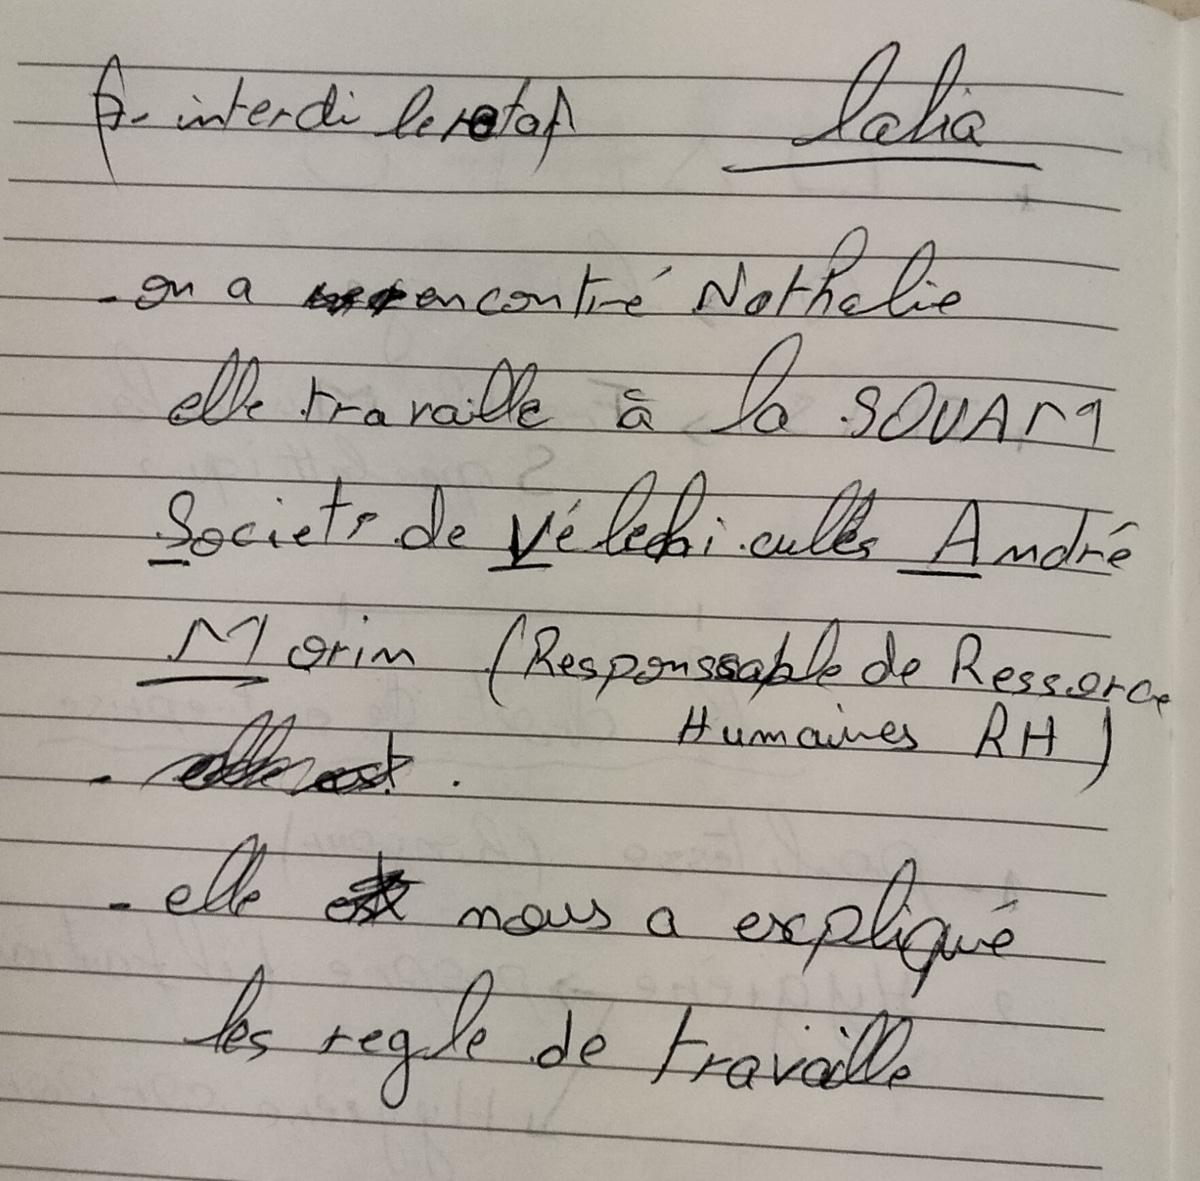 - interdi le retaf lalia
- on a rencontré Nathalie
elle travaille à la SOVAM
Societe de Véhiculles André
Morin (Responssable de Ressorce
Humaines RH)
- elle nous a expliqué
les regle de travaille